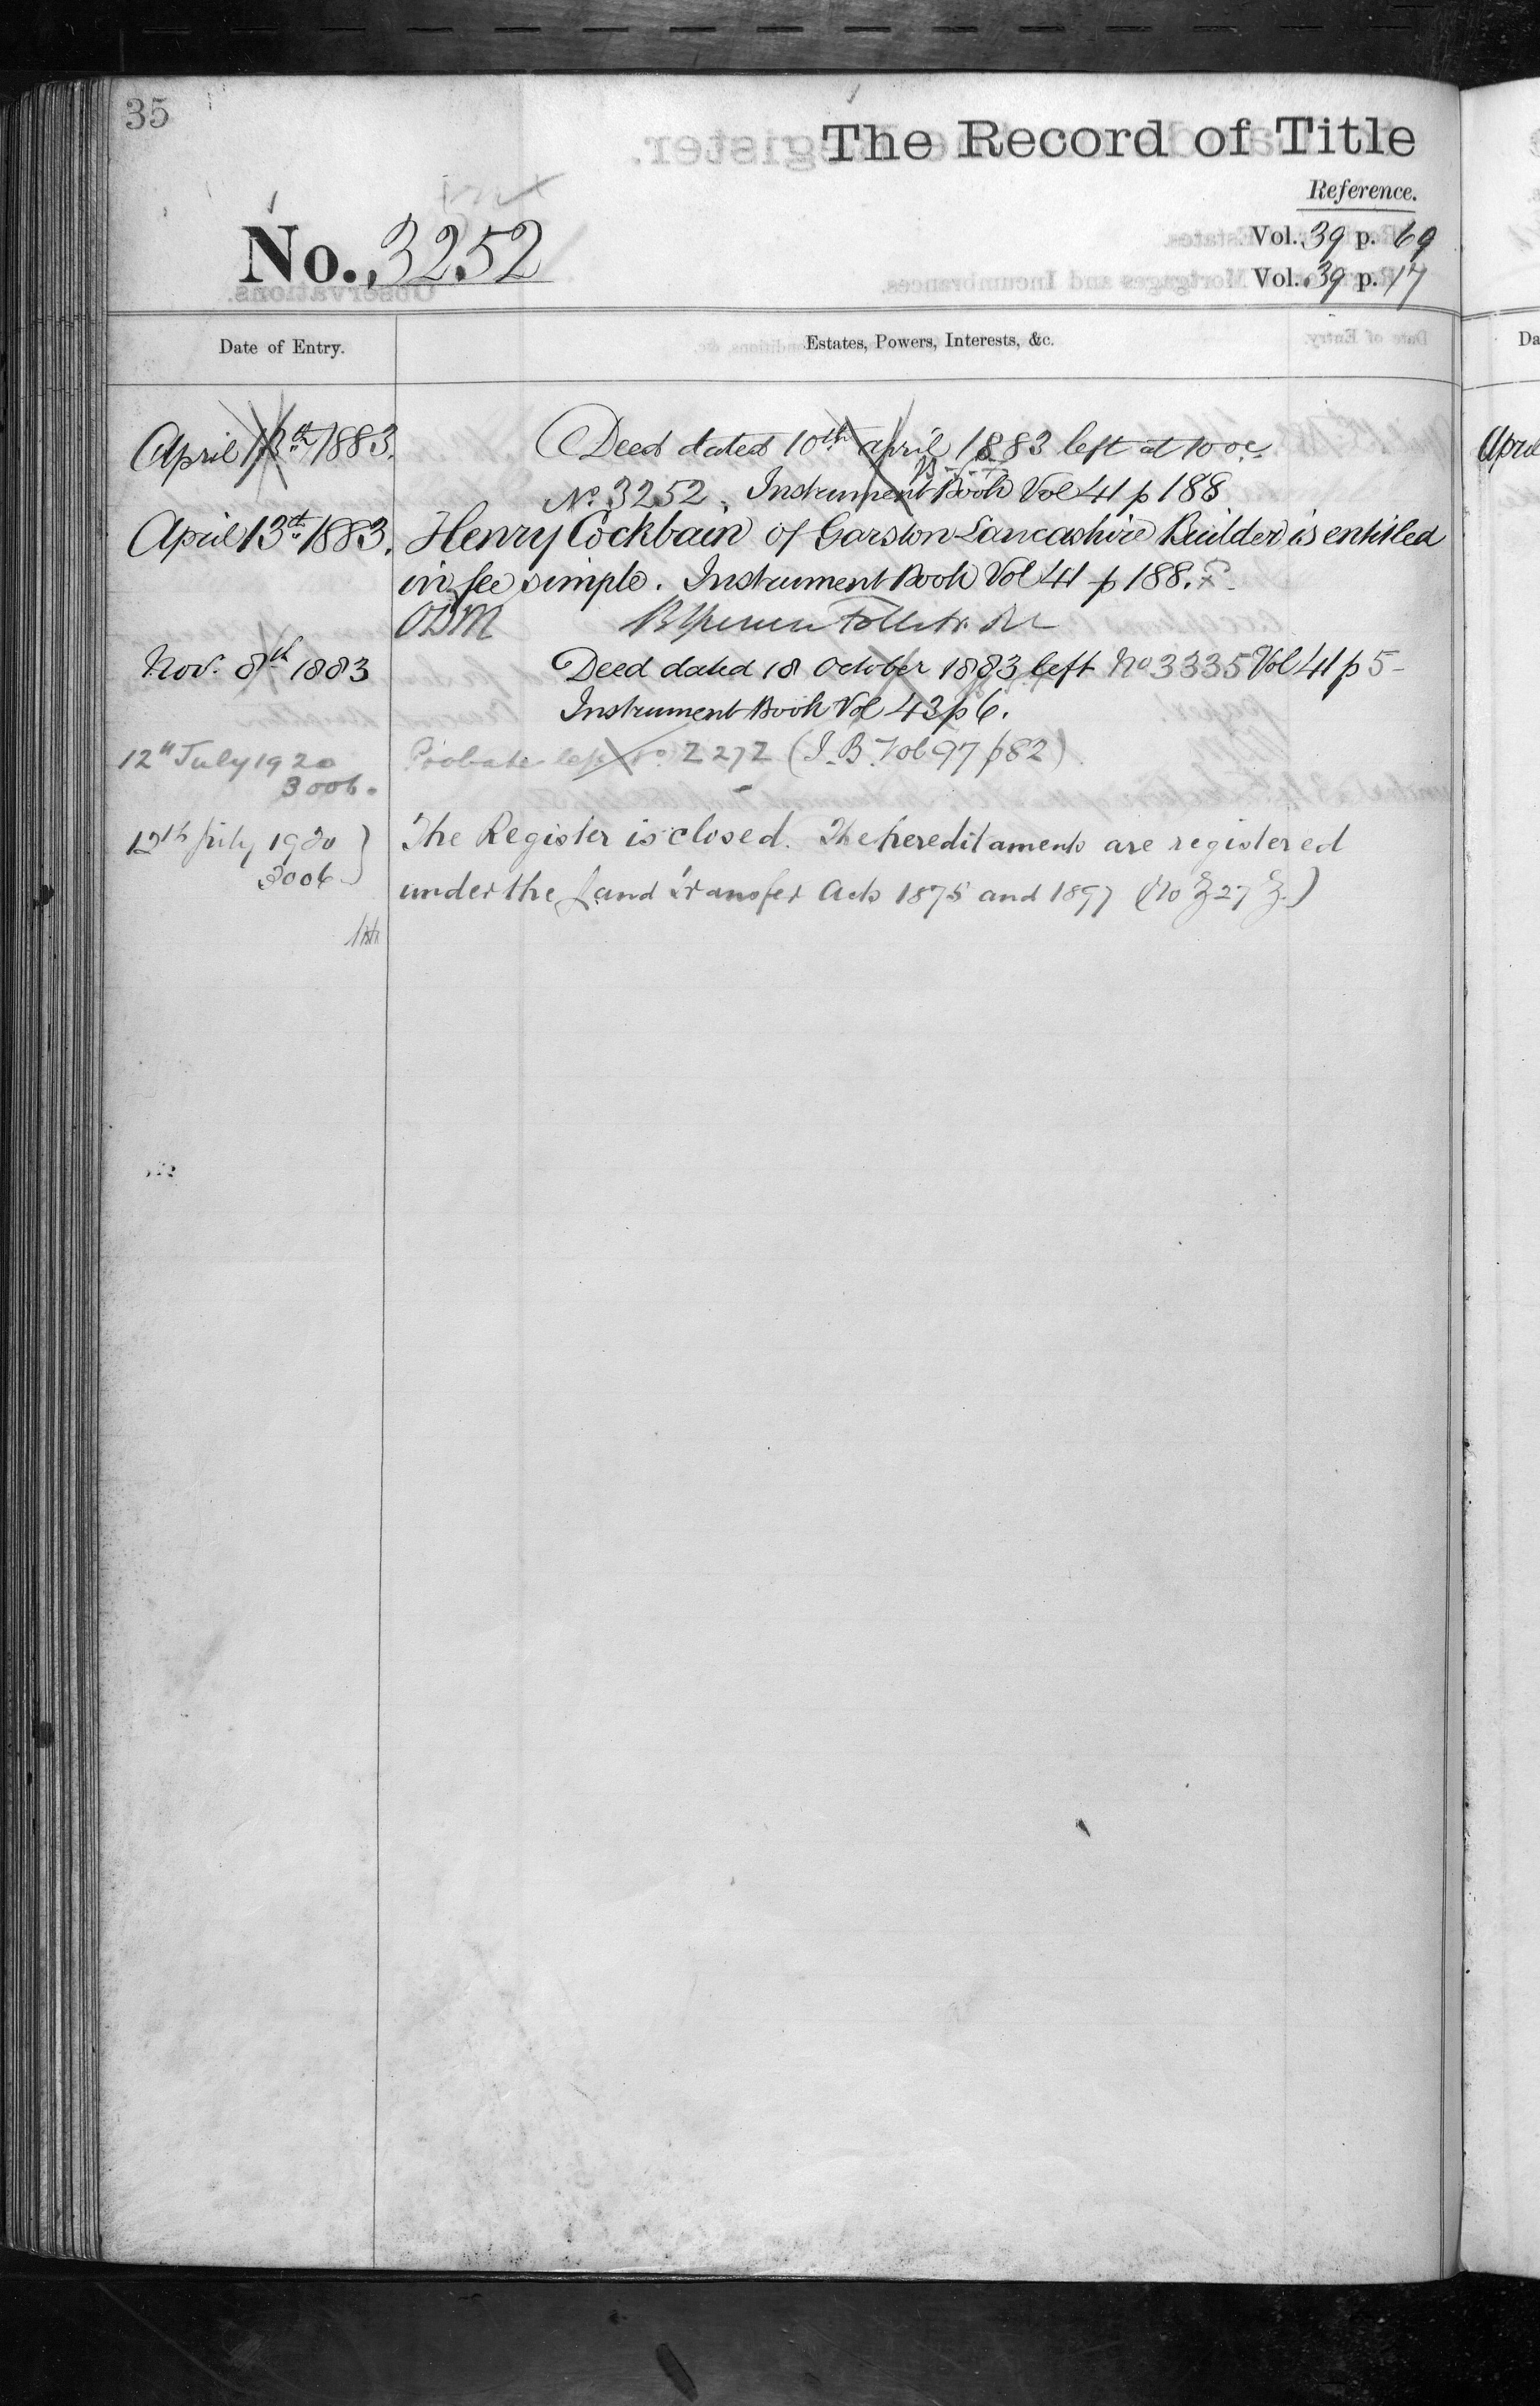 35
The Record of Title
Reference.
No. 3252
Vol. 39 p. 69
Vol. 39 p. 17
Date of Entry.
Estates, Powers, Interests, &c.
April 12th 1883.
Deed dated 10th April 1883 left at 10 oc.
No. 3252. Instrument Book Vol 41 p 188
April 13th 1883.
Henry Cockbain of Garston Lancashire Builder is entitled
in fee simple. Instrument Book Vol 41 p 188.
Nov. 8th 1883
Deed dated 18 October 1883 left No 3335 Vol 41 p 5-
Instrument Book Vol 43 p 6.
12th July 1920
Probate left No. Z 27Z (I.B. Vol 97 p 82)
3006.
12th July 1920
The Register is closed. The hereditaments are registered
3006
under the Land Transfer Acts 1875 and 1897 (No Z 27 Z.)
Da
April